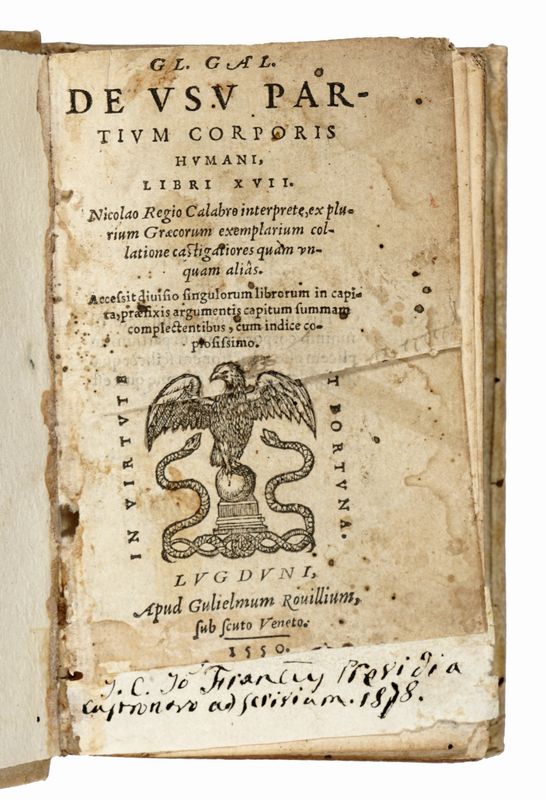 GL. GAL.
DE VSV PAR-
TIVM CORPORIS
HVMANI,
LIBRI XVII.
Nicolao Regio Calabro interprete, ex plu-
rium Græcorum exemplarium col-
latione castigatiores quàm vn-
quam aliâs.
Accessit diuisio singulorum librorum in capi-
ta, præfixis argumentis capitum summam
complectentibus, cum indice co-
piosissimo.
IN VIRTVTE
ET FORTVNA.
LVGDVNI,
Apud Gulielmum Rouillium,
sub scuto Veneto.
1550.
J. C. Jo Previdia
1878.